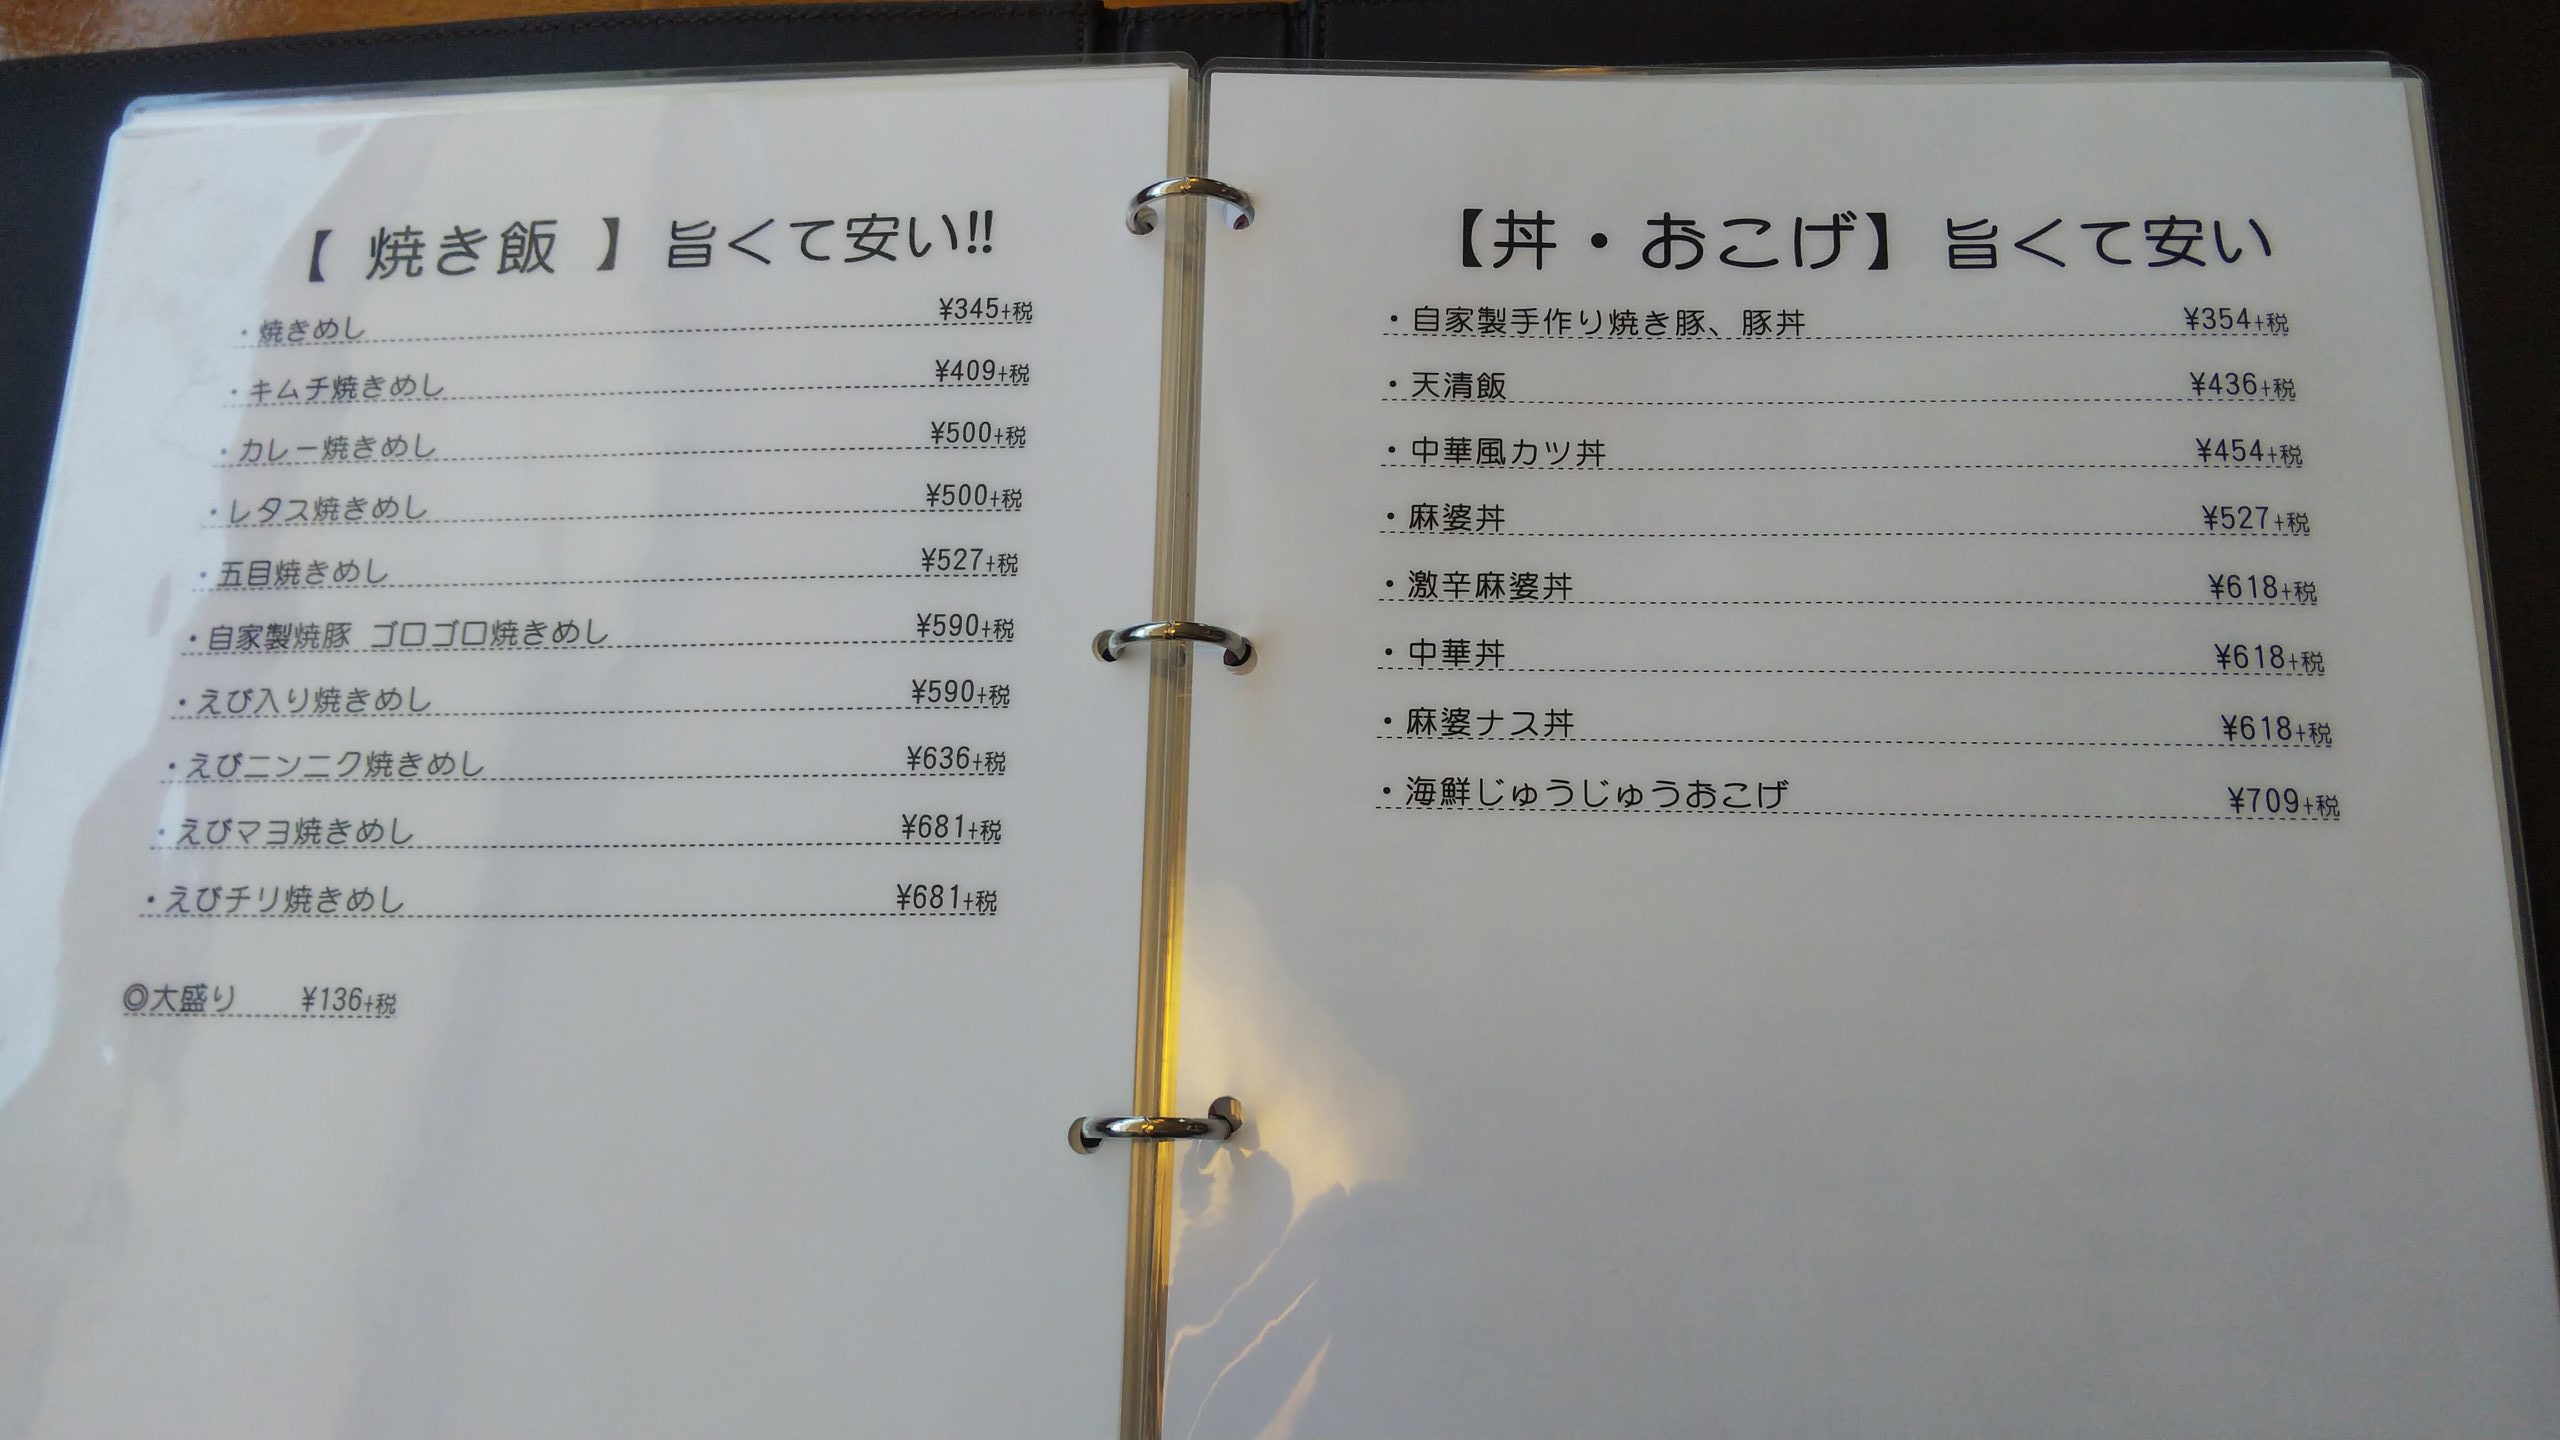 【 焼き飯 】 旨くて安い!!
・焼きめし ¥345+税
・キムチ焼きめし ¥409+税
・カレー焼きめし ¥500+税
・レタス焼きめし ¥500+税
・五目焼きめし ¥527+税
・自家製焼豚 ゴロゴロ焼きめし ¥590+税
・えび入り焼きめし ¥590+税
・えびニンニク焼きめし ¥636+税
・えびマヨ焼きめし ¥681+税
・えびチリ焼きめし ¥681+税
◎大盛り ¥136+税
【丼・おこげ】 旨くて安い
・自家製手作り焼き豚、豚丼 ¥354+税
・天清飯 ¥436+税
・中華風カツ丼 ¥454+税
・麻婆丼 ¥527+税
・激辛麻婆丼 ¥618+税
・中華丼 ¥618+税
・麻婆ナス丼 ¥618+税
・海鮮じゅうじゅうおこげ ¥709+税